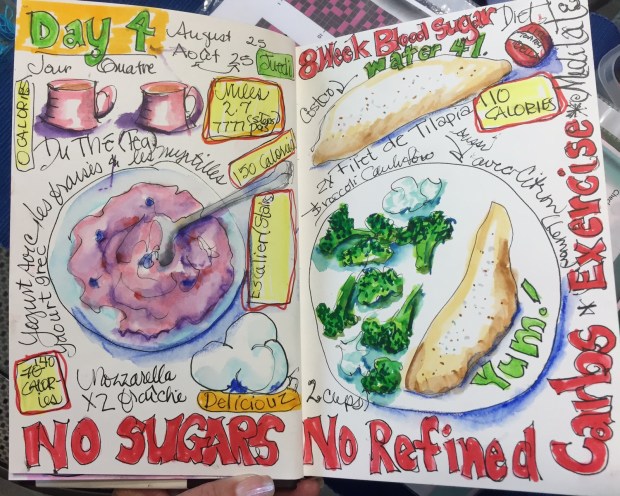 Day 4
August 25
Août 25
Jeudi
Jour Quatre
0 CALORIES
Miles
2.7
7777 steps
pas
Du Thé (Tea)
150 Calories
Yogurt avec les fraises & les myrtilles
yaourt grec
Escalier (Stairs)
140
70
CALOR-
IES
Mozzarella
X2 fraîche
Deliciouz
NO SUGARS
8 Week Blood Sugar Diet
Water 4L
Costco
110
CALORIES
2x Filet de Tilapia
Broccoli Cauliflower
avec Citron/Lemon
Yum!
2 cups
No Refined
Carbs * Exercise * Meditate